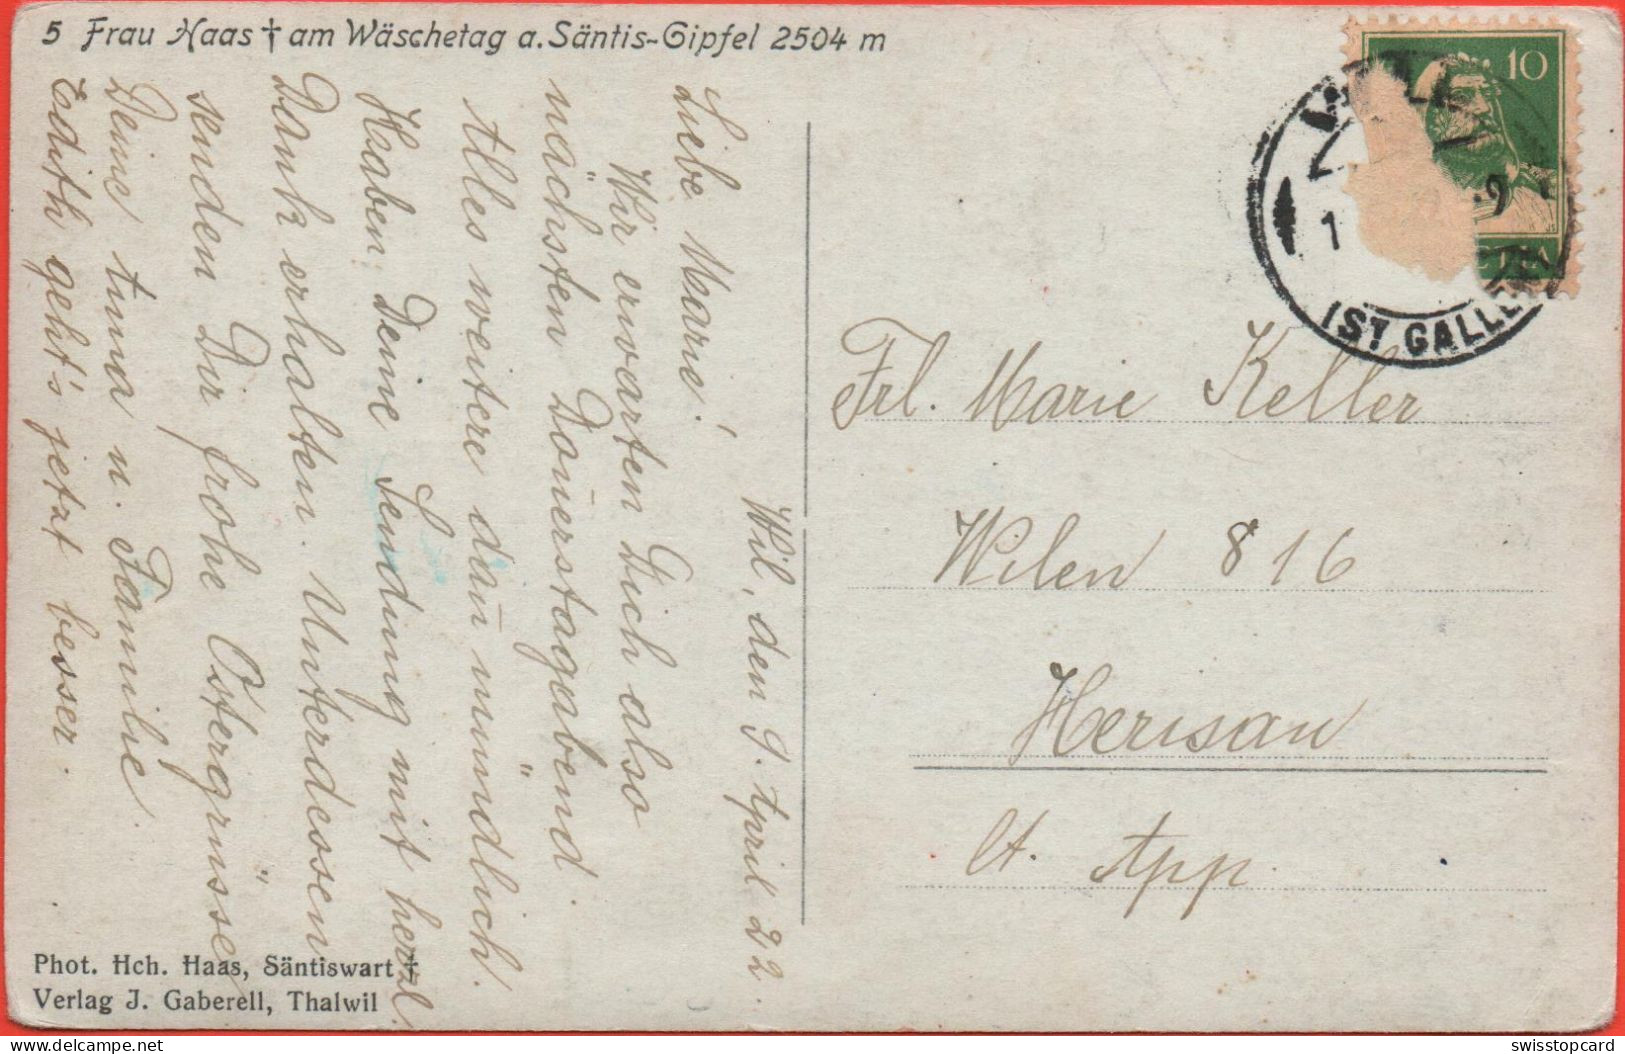 5 Frau Haas † am Wäschetag a. Säntis-Gipfel 2504 m
Wil, den 9. April 22.
Liebe Marie!
Wir erwarten Dich also
nächsten Donerstagabend.
Alles weitere dan mündlich.
Haben Deine Sendung mit herzl.
Dank erhalten. Unterdessen
senden Dir frohe Ostergrüsse
Deine u. Familie.
Edith geht's jetzt besser.
Phot. Hch. Haas, Säntiswart †
Verlag J. Gaberell, Thalwil
10
(ST. GALLEN)
Frl. Marie Keller
Wilen 816
Herisau
Ct. App.
swisstopcard